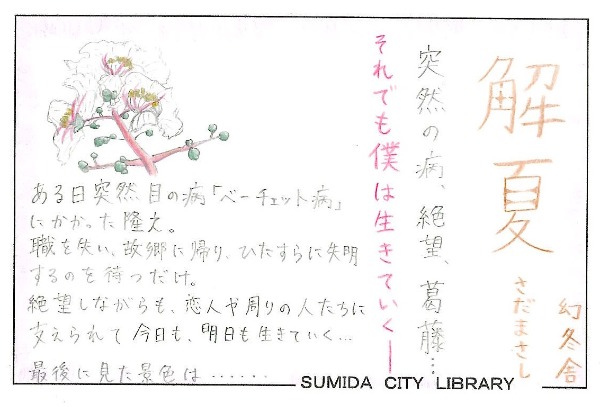 解夏
さだまさし
幻冬舎
突然の病、絶望、葛藤…
それでも僕は生きていく―
ある日突然目の病「ベーチェット病」
にかかった隆之。
職を失い、故郷に帰り、ひたすらに失明
するのを待つだけ。
絶望しながらも、恋人や周りの人たちに
支えられて今日も、明日も生きていく…
最後に見た景色は……
SUMIDA CITY LIBRARY